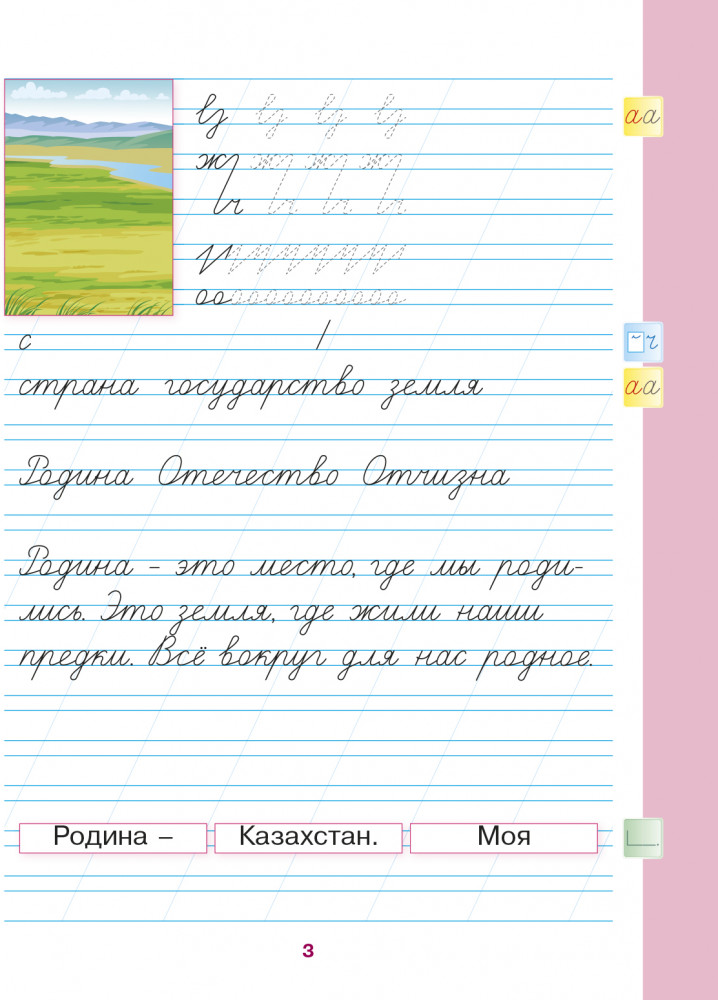 аа
оо
с /
ч
страна государство земля
аа
Родина Отечество Отчизна
Родина - это место, где мы роди-
лись. Это земля, где жили наши
предки. Всё вокруг для нас родное.
Родина – Казахстан. Моя
3